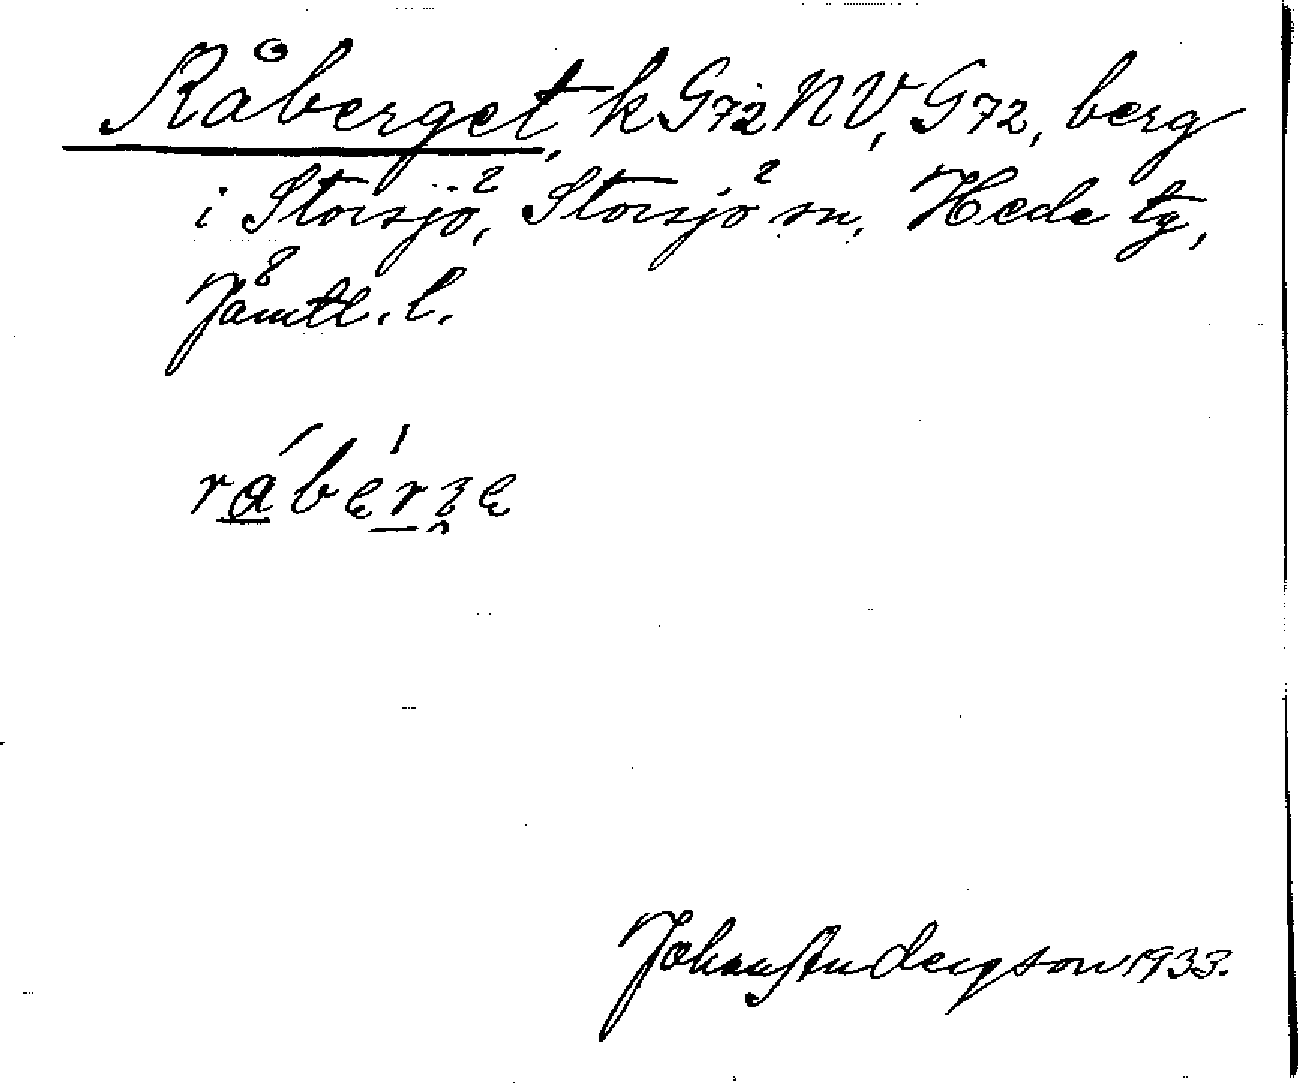 Råberget, k G72NV, G72, berg
i Storsjö, Storsjö sn, Hede tg,
Jämtl. l.
rábẹ́rʒẹ
Johan Andersson 1933.